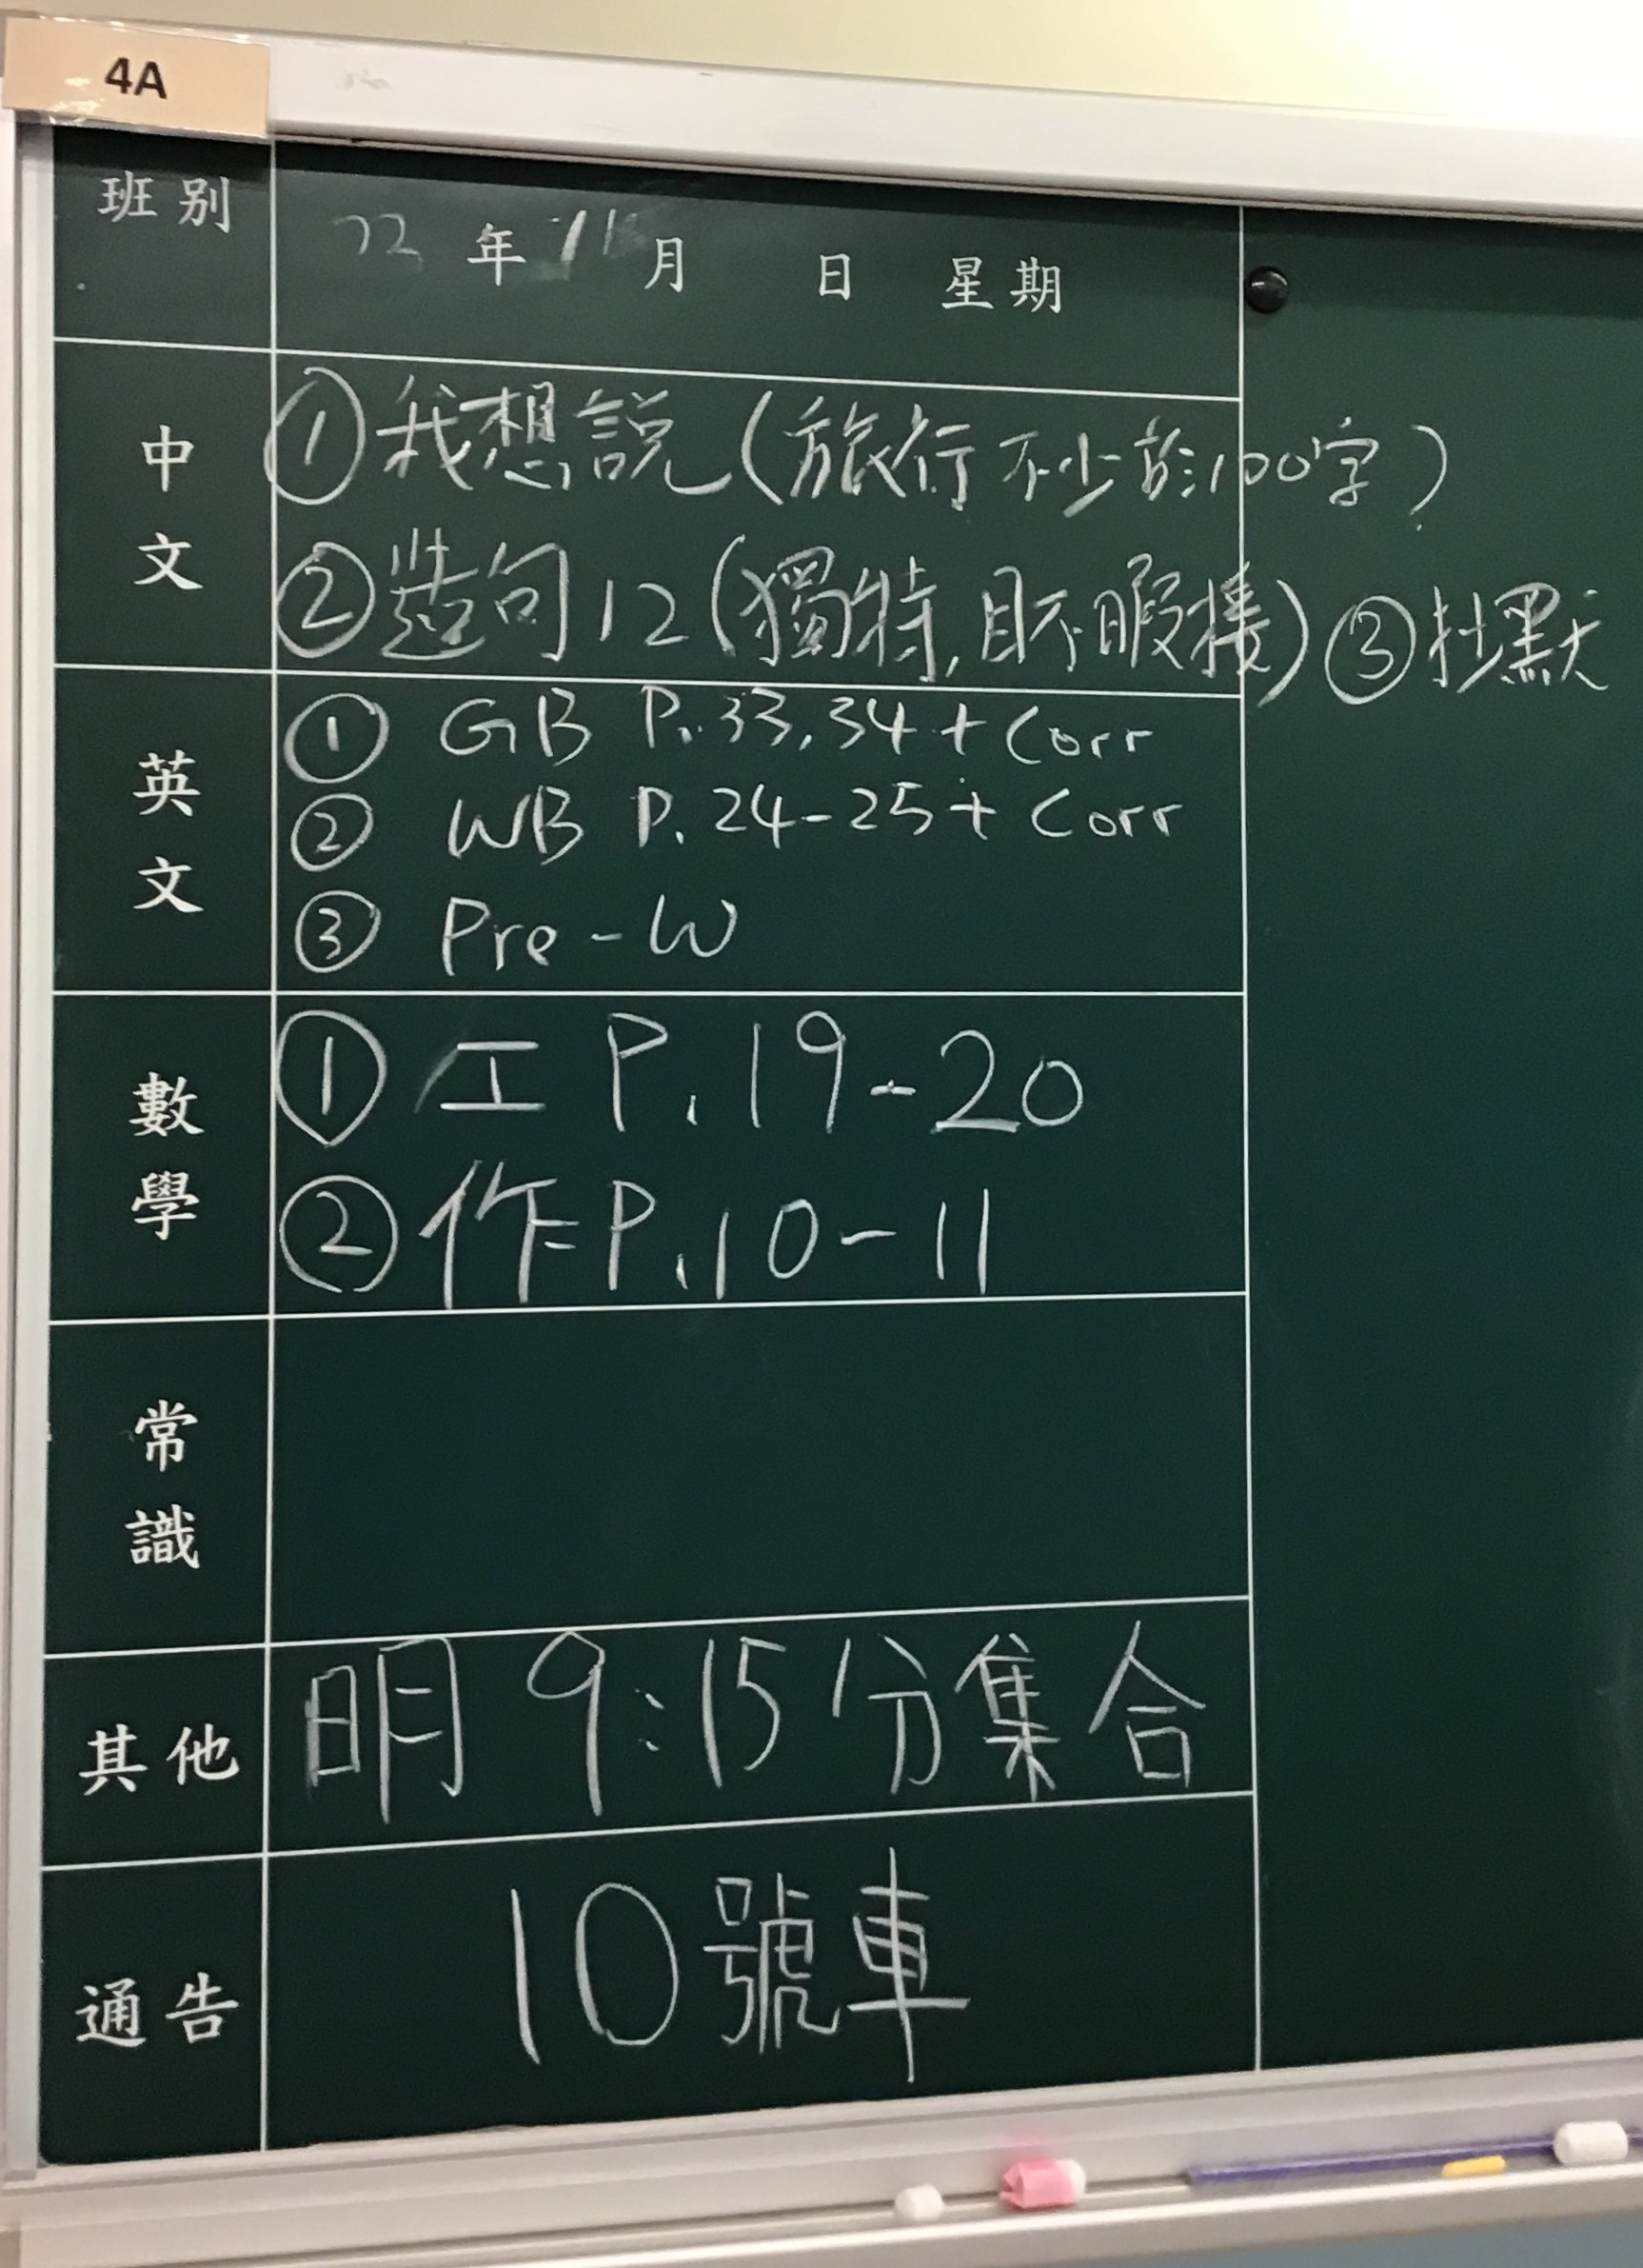 4A
班別
22 年 11 月 日 星期
中文
①我想說(旅行不少於100字)
②造句12(獨特,目不暇接)③抄默
英文
① GB P.33,34 + Corr
② WB P.24-25 + Corr
③ Pre-W
數學
① 工 P.19-20
② 作 P.10-11
常識
其他
明 9:15分集合
通告
10號車